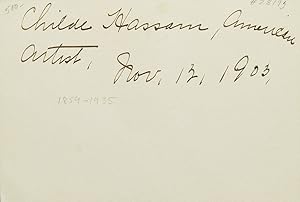 Childe Hassam, American
Artist, Nov. 12, 1903,
1859-1935